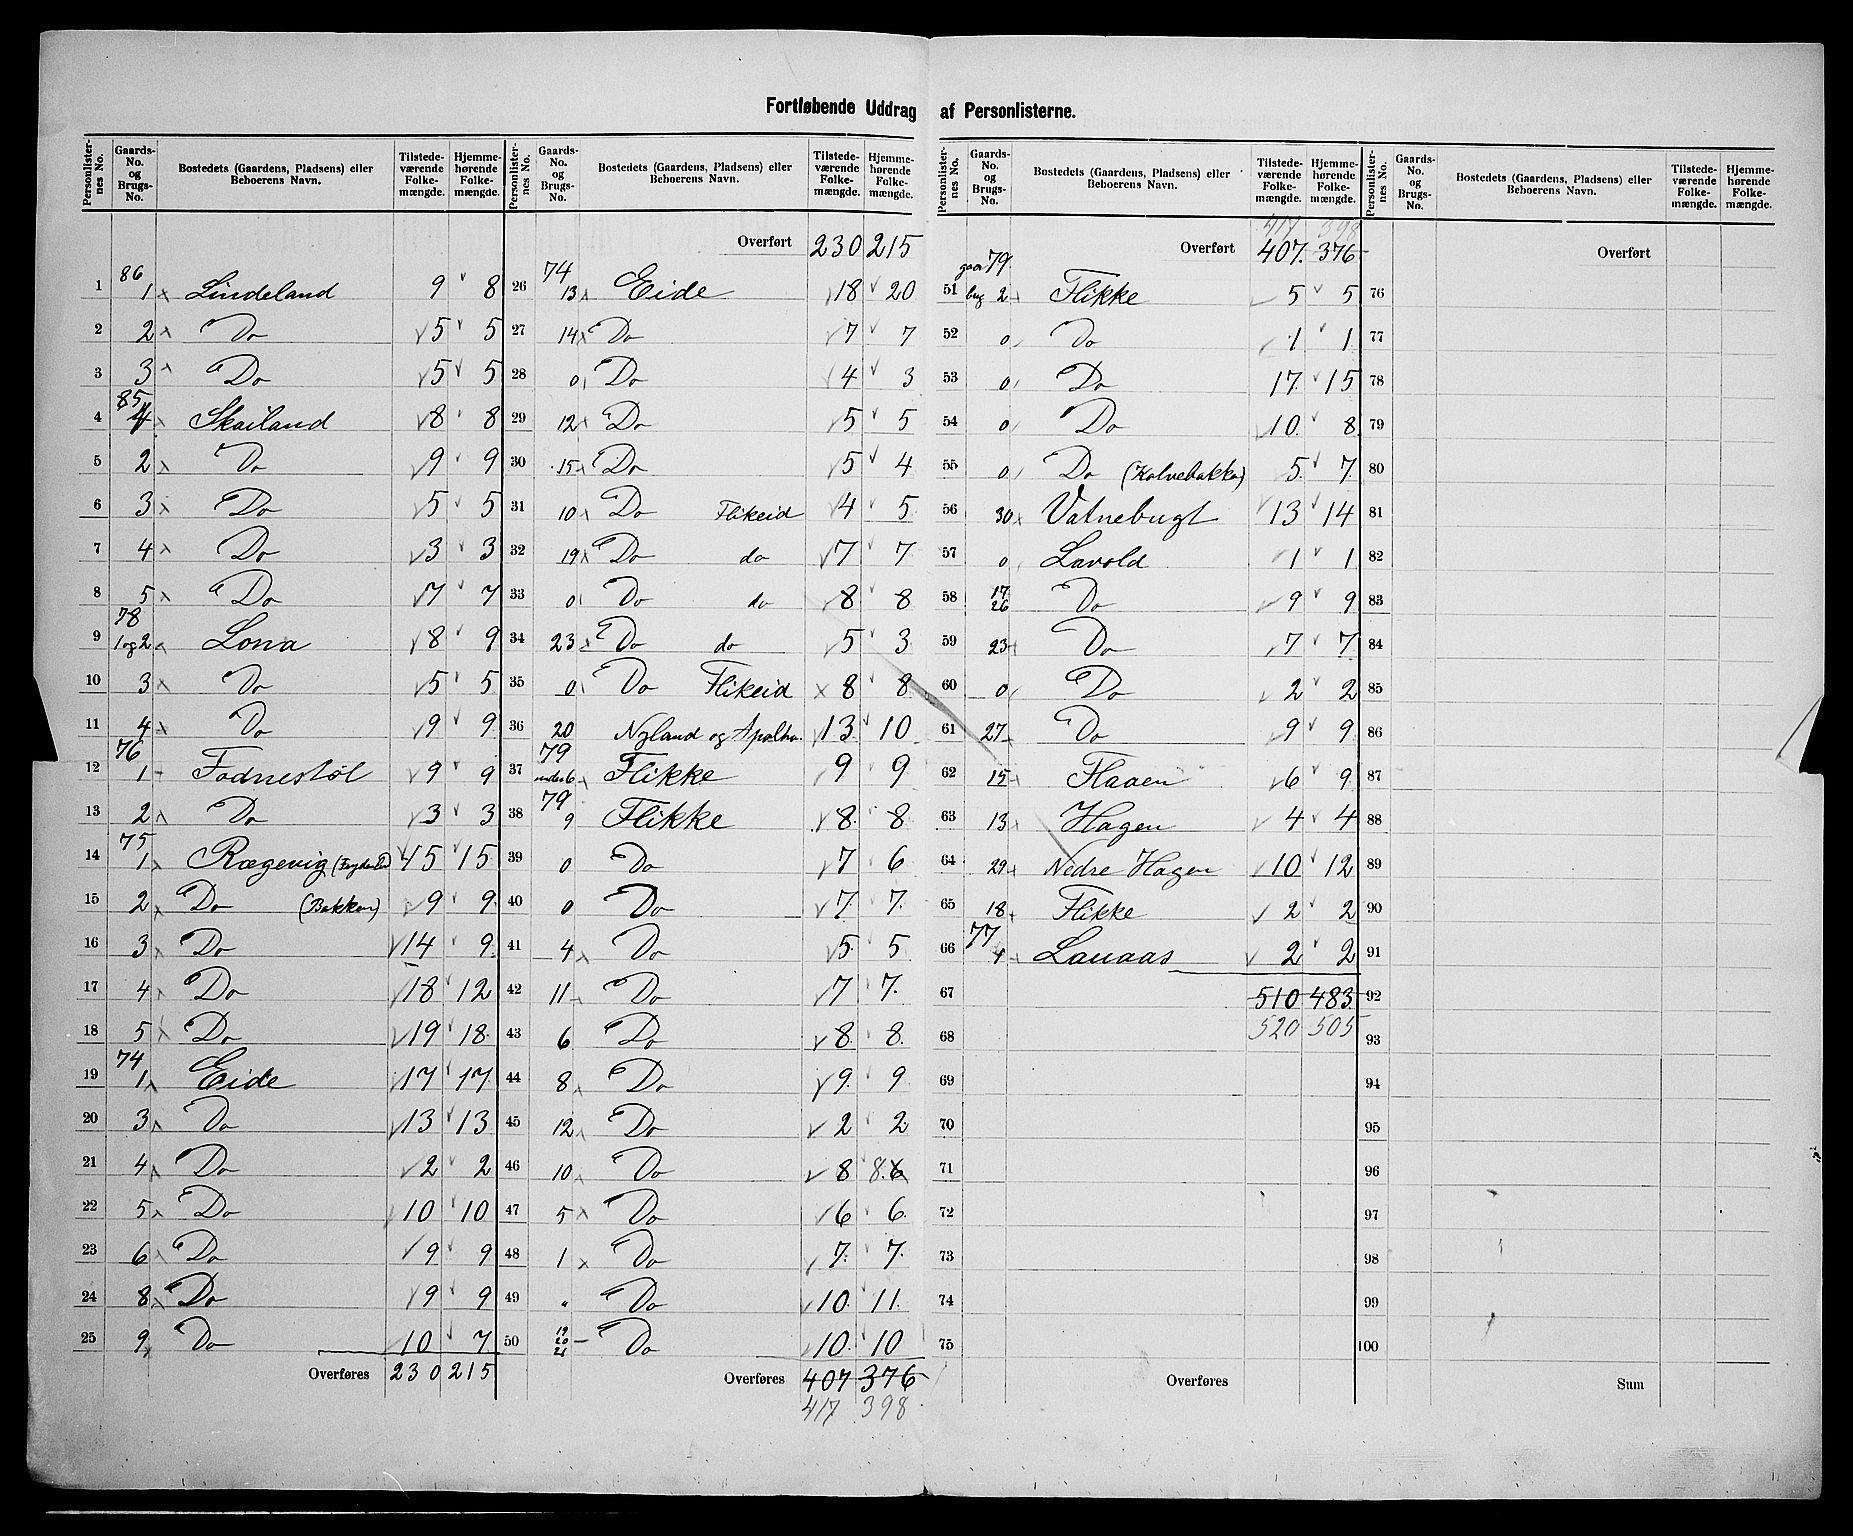 Fortløbende Uddrag af Personlisterne.
Personlister-nes No. | Gaards-No. og Brugs-No. | Bostedets (Gaardens, Pladsens) eller Beboerens Navn. | Tilstede-værende Folke-mængde. | Hjemme-hørende Folke-mængde.
1 | 86 1 | Lindeland | 9 | 8
2 | 2 | Do | 5 | 5
3 | 3 | Do | 5 | 5
4 | 85 1 | Skailand | 8 | 8
5 | 2 | Do | 9 | 9
6 | 3 | Do | 5 | 5
7 | 4 | Do | 3 | 3
8 | 5 | Do | 7 | 7
9 | 78 1 og 2 | Lona | 8 | 9
10 | 3 | Do | 5 | 5
11 | 4 | Do | 9 | 9
12 | 76 1 | Fodnestøl | 9 | 9
13 | 2 | Do | 3 | 3
14 | 75 1 | Rægevig | 15 | 15
15 | 2 | Do (Bakken) | 9 | 9
16 | 3 | Do | 14 | 9
17 | 4 | Do | 18 | 12
18 | 5 | Do | 19 | 18
19 | 74 1 | Eide | 17 | 17
20 | 3 | Do | 13 | 13
21 | 4 | Do | 2 | 2
22 | 5 | Do | 10 | 10
23 | 6 | Do | 9 | 9
24 | 8 | Do | 9 | 9
25 | 9 | Do | 10 | 7
Overføres 230 215
Personlister-nes No. | Gaards-No. og Brugs-No. | Bostedets (Gaardens, Pladsens) eller Beboerens Navn. | Tilstede-værende Folke-mængde. | Hjemme-hørende Folke-mængde.
Overført 230 215
26 | 74 13 | Eide | 18 | 20
27 | 14 | Do | 7 | 7
28 | 0 | Do | 4 | 3
29 | 12 | Do | 5 | 5
30 | 15 | Do | 5 | 4
31 | 10 | Do Flikeid | 4 | 5
32 | 19 | Do do | 7 | 7
33 | 0 | Do do | 8 | 8
34 | 23 | Do do | 5 | 3
35 | 0 | Do Flikeid | 8 | 8
36 | 20 | Nyland og | 13 | 10
37 | 79 under 6 | Flikke | 9 | 9
38 | 79 9 | Flikke | 8 | 8
39 | 0 | Do | 7 | 6
40 | 0 | Do | 7 | 7
41 | 4 | Do | 5 | 5
42 | 11 | Do | 7 | 7
43 | 6 | Do | 8 | 8
44 | 8 | Do | 9 | 9
45 | 12 | Do | 2 | 2
46 | 10 | Do | 8 | 8 6
47 | 5 | Do | 6 | 6
48 | 1 | Do | 7 | 7
49 | " | Do | 10 | 11
50 | 19 20 21 | Do | 10 | 10
Overføres 407 376
417 398
Personlister-nes No. | Gaards-No. og Brugs-No. | Bostedets (Gaardens, Pladsens) eller Beboerens Navn. | Tilstede-værende Folke-mængde. | Hjemme-hørende Folke-mængde.
417 398
Overført 407 376
51 | gaar 79 bug 2 | Flikke | 5 | 5
52 | 0 | Do | 1 | 1
53 | 0 | Do | 17 | 15
54 | 0 | Do | 10 | 8
55 | 0 | Do (Kalvebakka) | 5 | 7
56 | 30 | Vatnebugt | 13 | 14
57 | 0 | Lavold | 1 | 1
58 | 17 26 | Do | 9 | 9
59 | 23 | Do | 7 | 7
60 | 0 | Do | 2 | 2
61 | 27 | Do | 9 | 9
62 | 15 | Flaaen | 6 | 9
63 | 13 | Hagen | 4 | 4
64 | 29 | Nedre Hagen | 10 | 12
65 | 18 | Flikke | 2 | 2
66 | 77 1 | Lauaas | 2 | 2
67 | 510 | 483
68 | 520 | 505
69
70
71
72
73
74
75
Overføres
Personlister-nes No. | Gaards-No. og Brugs-No. | Bostedets (Gaardens, Pladsens) eller Beboerens Navn. | Tilstede-værende Folke-mængde. | Hjemme-hørende Folke-mængde.
Overført
76
77
78
79
80
81
82
83
84
85
86
87
88
89
90
91
92
93
94
95
96
97
98
99
100
Sum